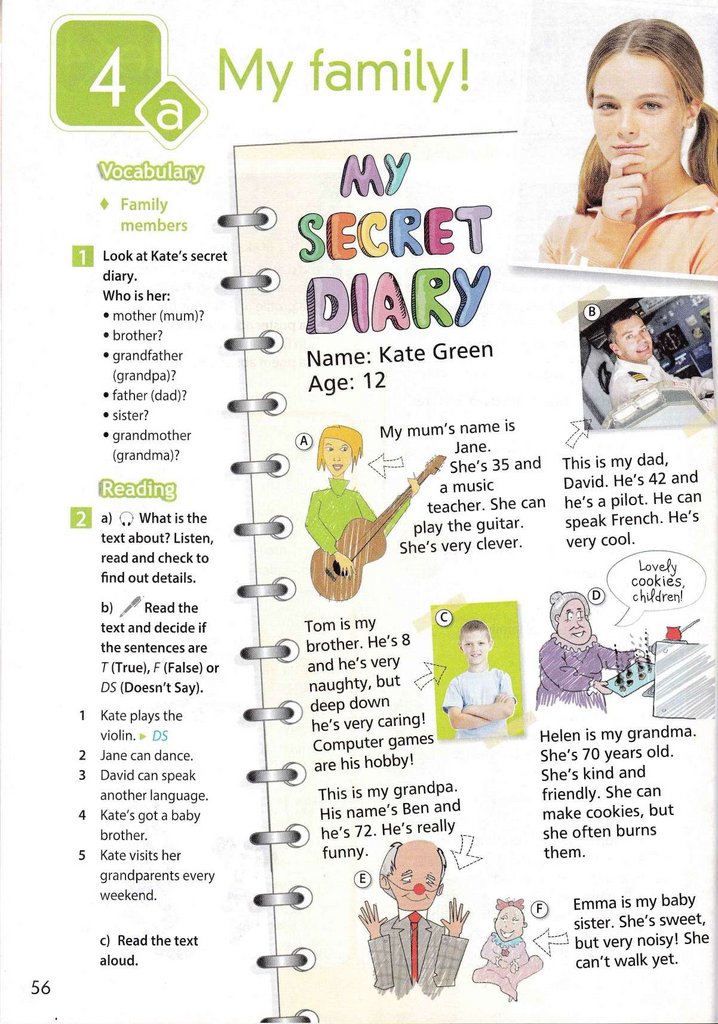 4
a
My family!
Vocabulary
♦ Family
members
1 Look at Kate's secret
diary.
Who is her:
• mother (mum)?
• brother?
• grandfather
(grandpa)?
• father (dad)?
• sister?
• grandmother
(grandma)?
Reading
2 a) What is the
text about? Listen,
read and check to
find out details.
b) Read the
text and decide if
the sentences are
T (True), F (False) or
DS (Doesn't Say).
1 Kate plays the
violin. ▸ DS
2 Jane can dance.
3 David can speak
another language.
4 Kate's got a baby
brother.
5 Kate visits her
grandparents every
weekend.
c) Read the text
aloud.
56
MY
SECRET
DIARY
Name: Kate Green
Age: 12
A
My mum's name is
Jane.
She's 35 and
a music
teacher. She can
play the guitar.
She's very clever.
B
This is my dad,
David. He's 42 and
he's a pilot. He can
speak French. He's
very cool.
C
Tom is my
brother. He's 8
and he's very
naughty, but
deep down
he's very caring!
Computer games
are his hobby!
D
Lovely
cookies,
children!
Helen is my grandma.
She's 70 years old.
She's kind and
friendly. She can
make cookies, but
she often burns
them.
This is my grandpa.
His name's Ben and
he's 72. He's really
funny.
E
F
Emma is my baby
sister. She's sweet,
but very noisy! She
can't walk yet.